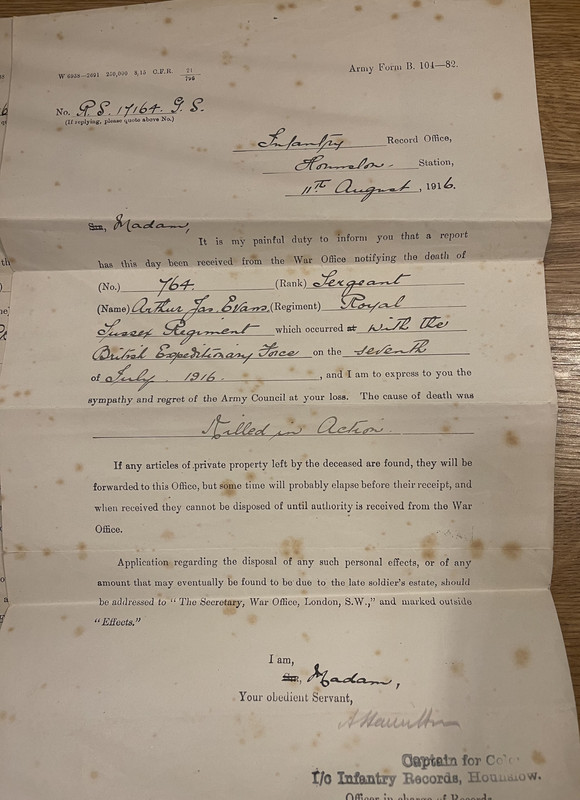 W 6558—2691 250,000 8,15 C.F.R. 21/798
Army Form B. 104—82.
No. R.S. 17164. G.S.
(If replying, please quote above No.)
Infantry Record Office,
Hounslow. Station,
11th August, 1916.
Sir, Madam,
It is my painful duty to inform you that a report
has this day been received from the War Office notifying the death of
(No.) 764. (Rank) Sergeant
(Name) Arthur Jas. Evans, (Regiment) Royal
Sussex Regiment which occurred at with the
British Expeditionary Force on the seventh
of July 1916. , and I am to express to you the
sympathy and regret of the Army Council at your loss. The cause of death was
Killed in Action.
If any articles of private property left by the deceased are found, they will be
forwarded to this Office, but some time will probably elapse before their receipt, and
when received they cannot be disposed of until authority is received from the War
Office.
Application regarding the disposal of any such personal effects, or of any
amount that may eventually be found to be due to the late soldier's estate, should
be addressed to "The Secretary, War Office, London, S.W.," and marked outside
"Effects."
I am,
Sir, Madam,
Your obedient Servant,
Captain for
I/c Infantry Records, Hounslow.
Officer in charge of Records.